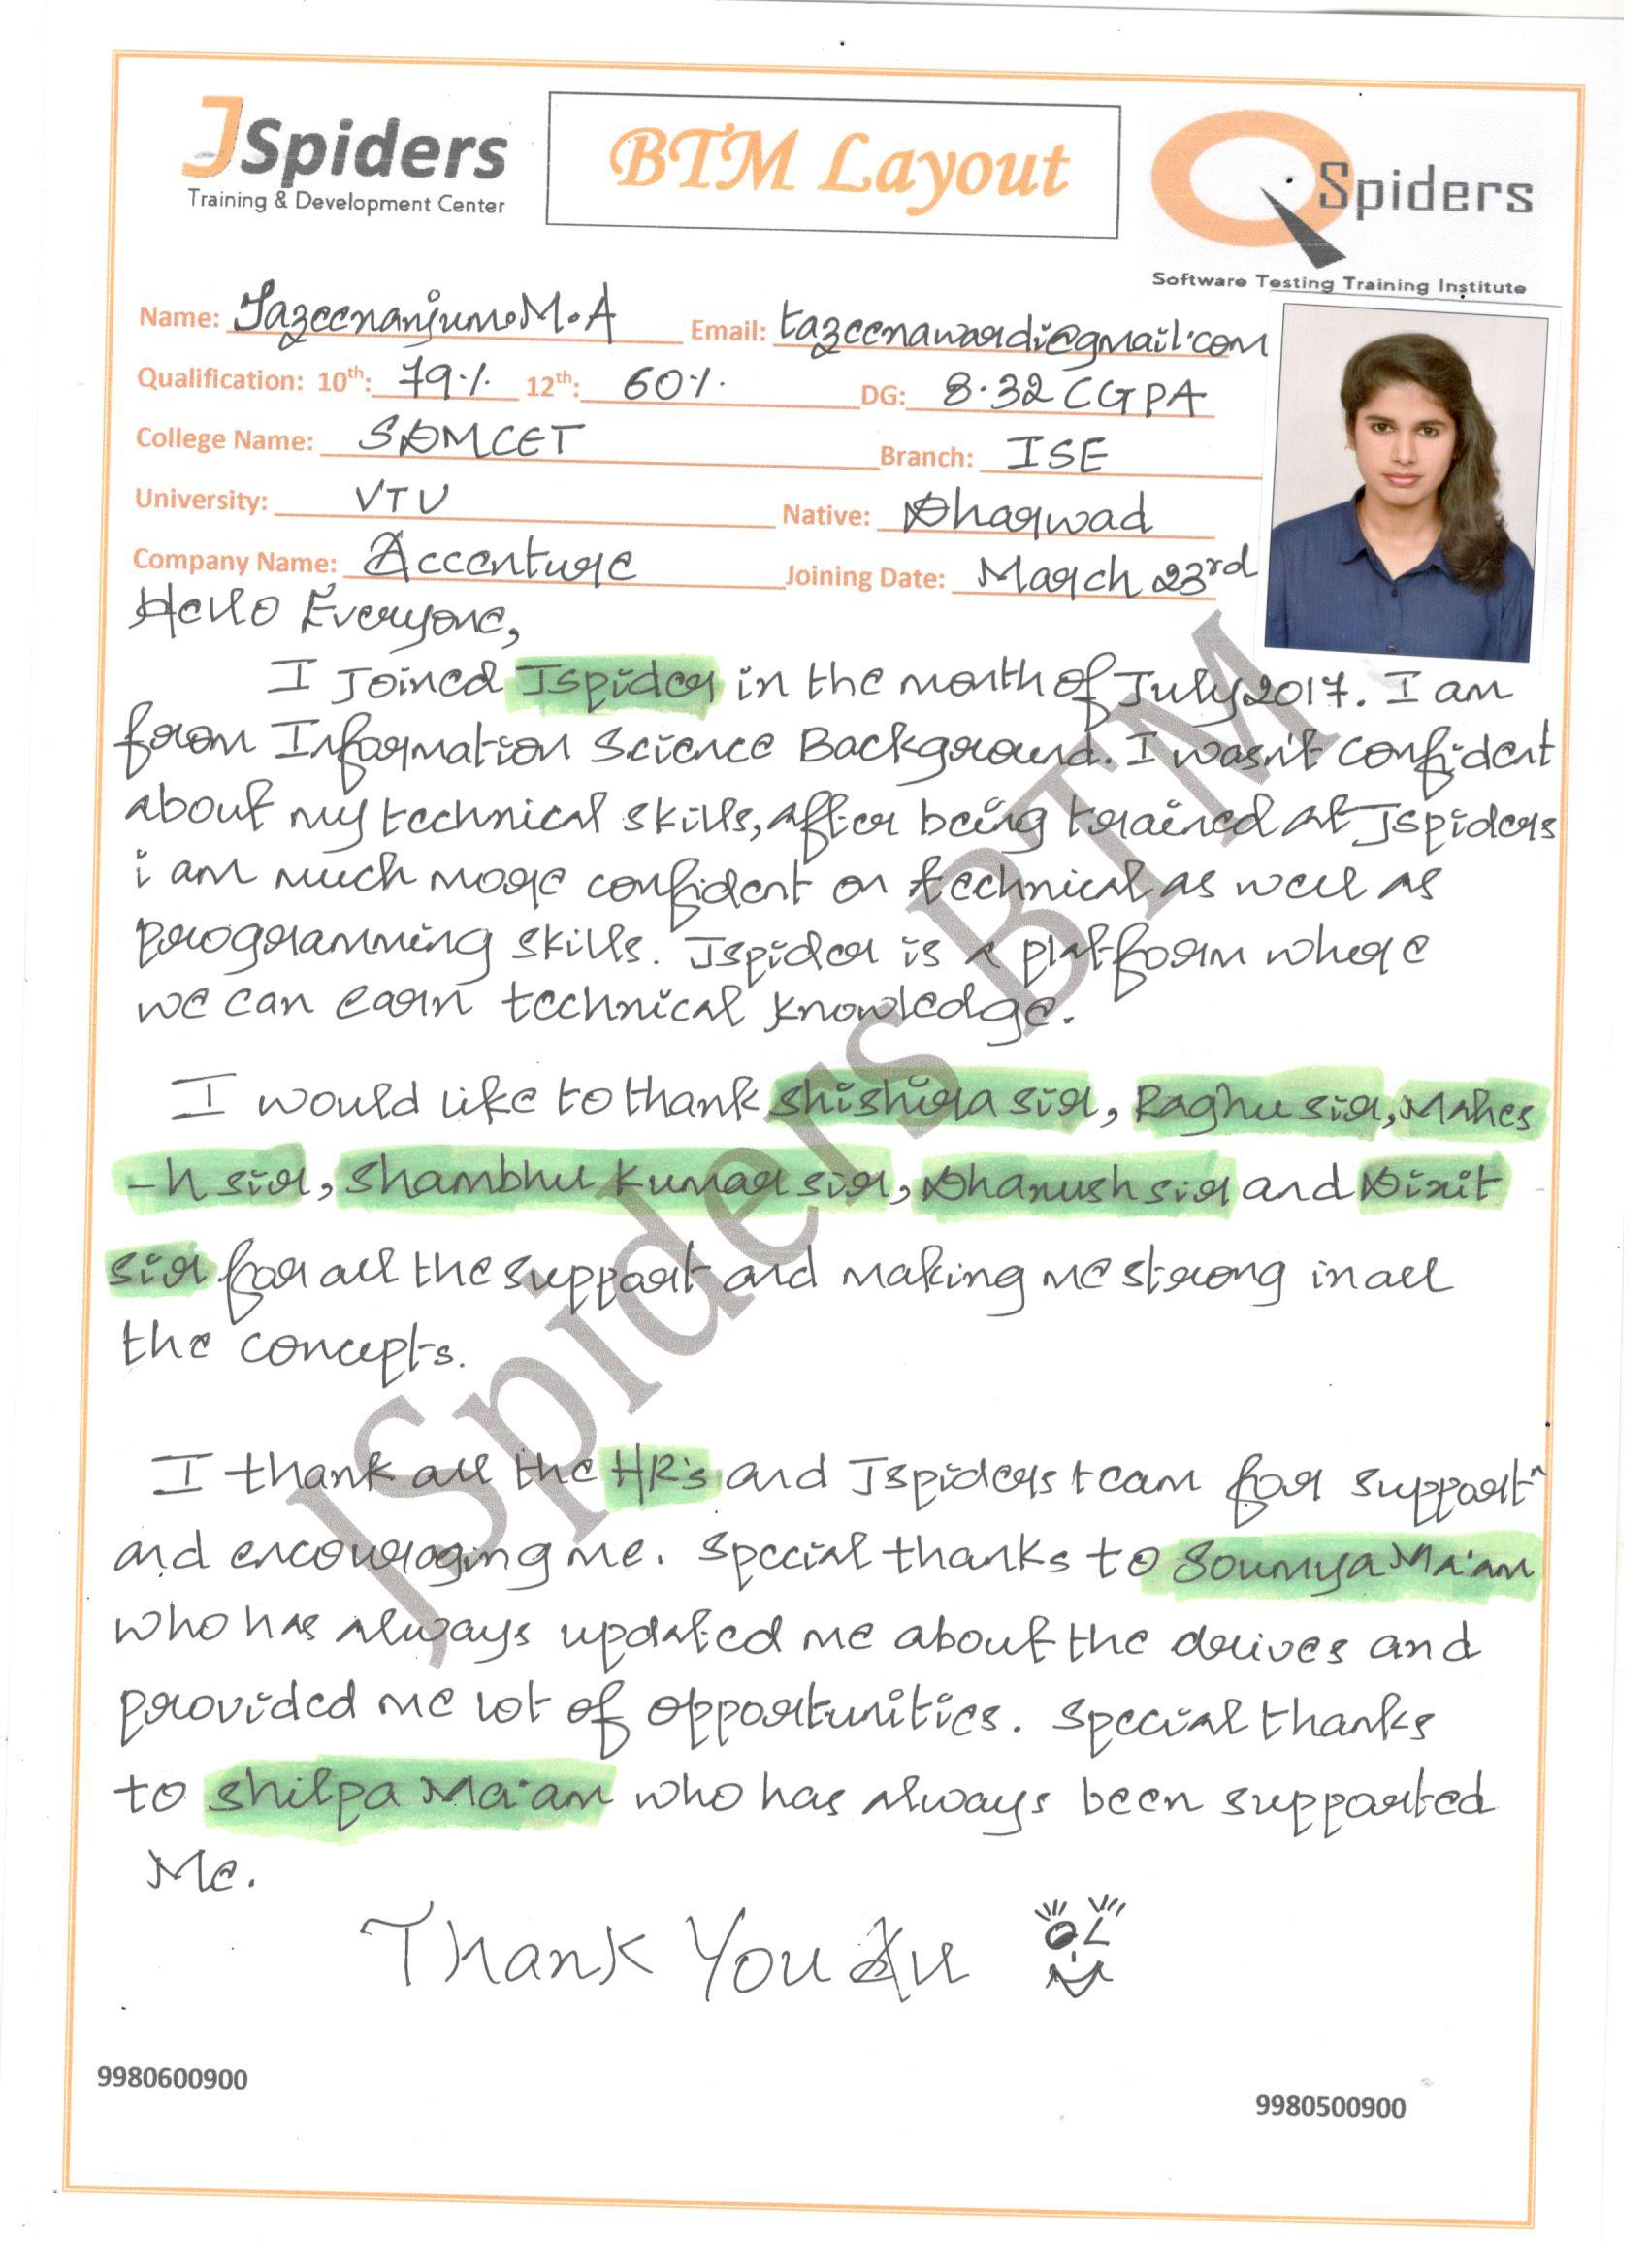 JSpiders
Training & Development Center
BTM Layout
QSpiders
Software Testing Training Institute
Name: Tazeenanjum.M.A Email: tazeenawardi@gmail.com
Qualification: 10th: 79% 12th: 60% DG: 8.32 CGPA
College Name: SDMCET Branch: ISE
University: VTU Native: Dharwad
Company Name: Accenture Joining Date: March 23rd
Hello Everyone,
I Joined Jspider in the month of July 2017. I am
from Information Science Background. I wasn't confident
about my technical skills, after being trained at Jspiders
i am much more confident on technical as well as
programming skills. Jspider is a platform where
we can earn technical knowledge.
I would like to thank Shishira sir, Raghu sir, Mahes
-h sir, Shambhu Kumar sir, Dhanush sir and Dixit
sir for all the support and making me strong in all
the concepts.
I thank all the HR's and Jspiders team for support
and encouraging me. Special thanks to Soumya Ma'am
who has always updated me about the drives and
provided me lot of opportunities. Special thanks
to Shilpa Ma'am who has always been supported
Me.
Thank You All
9980600900
9980500900
JSpiders BTM